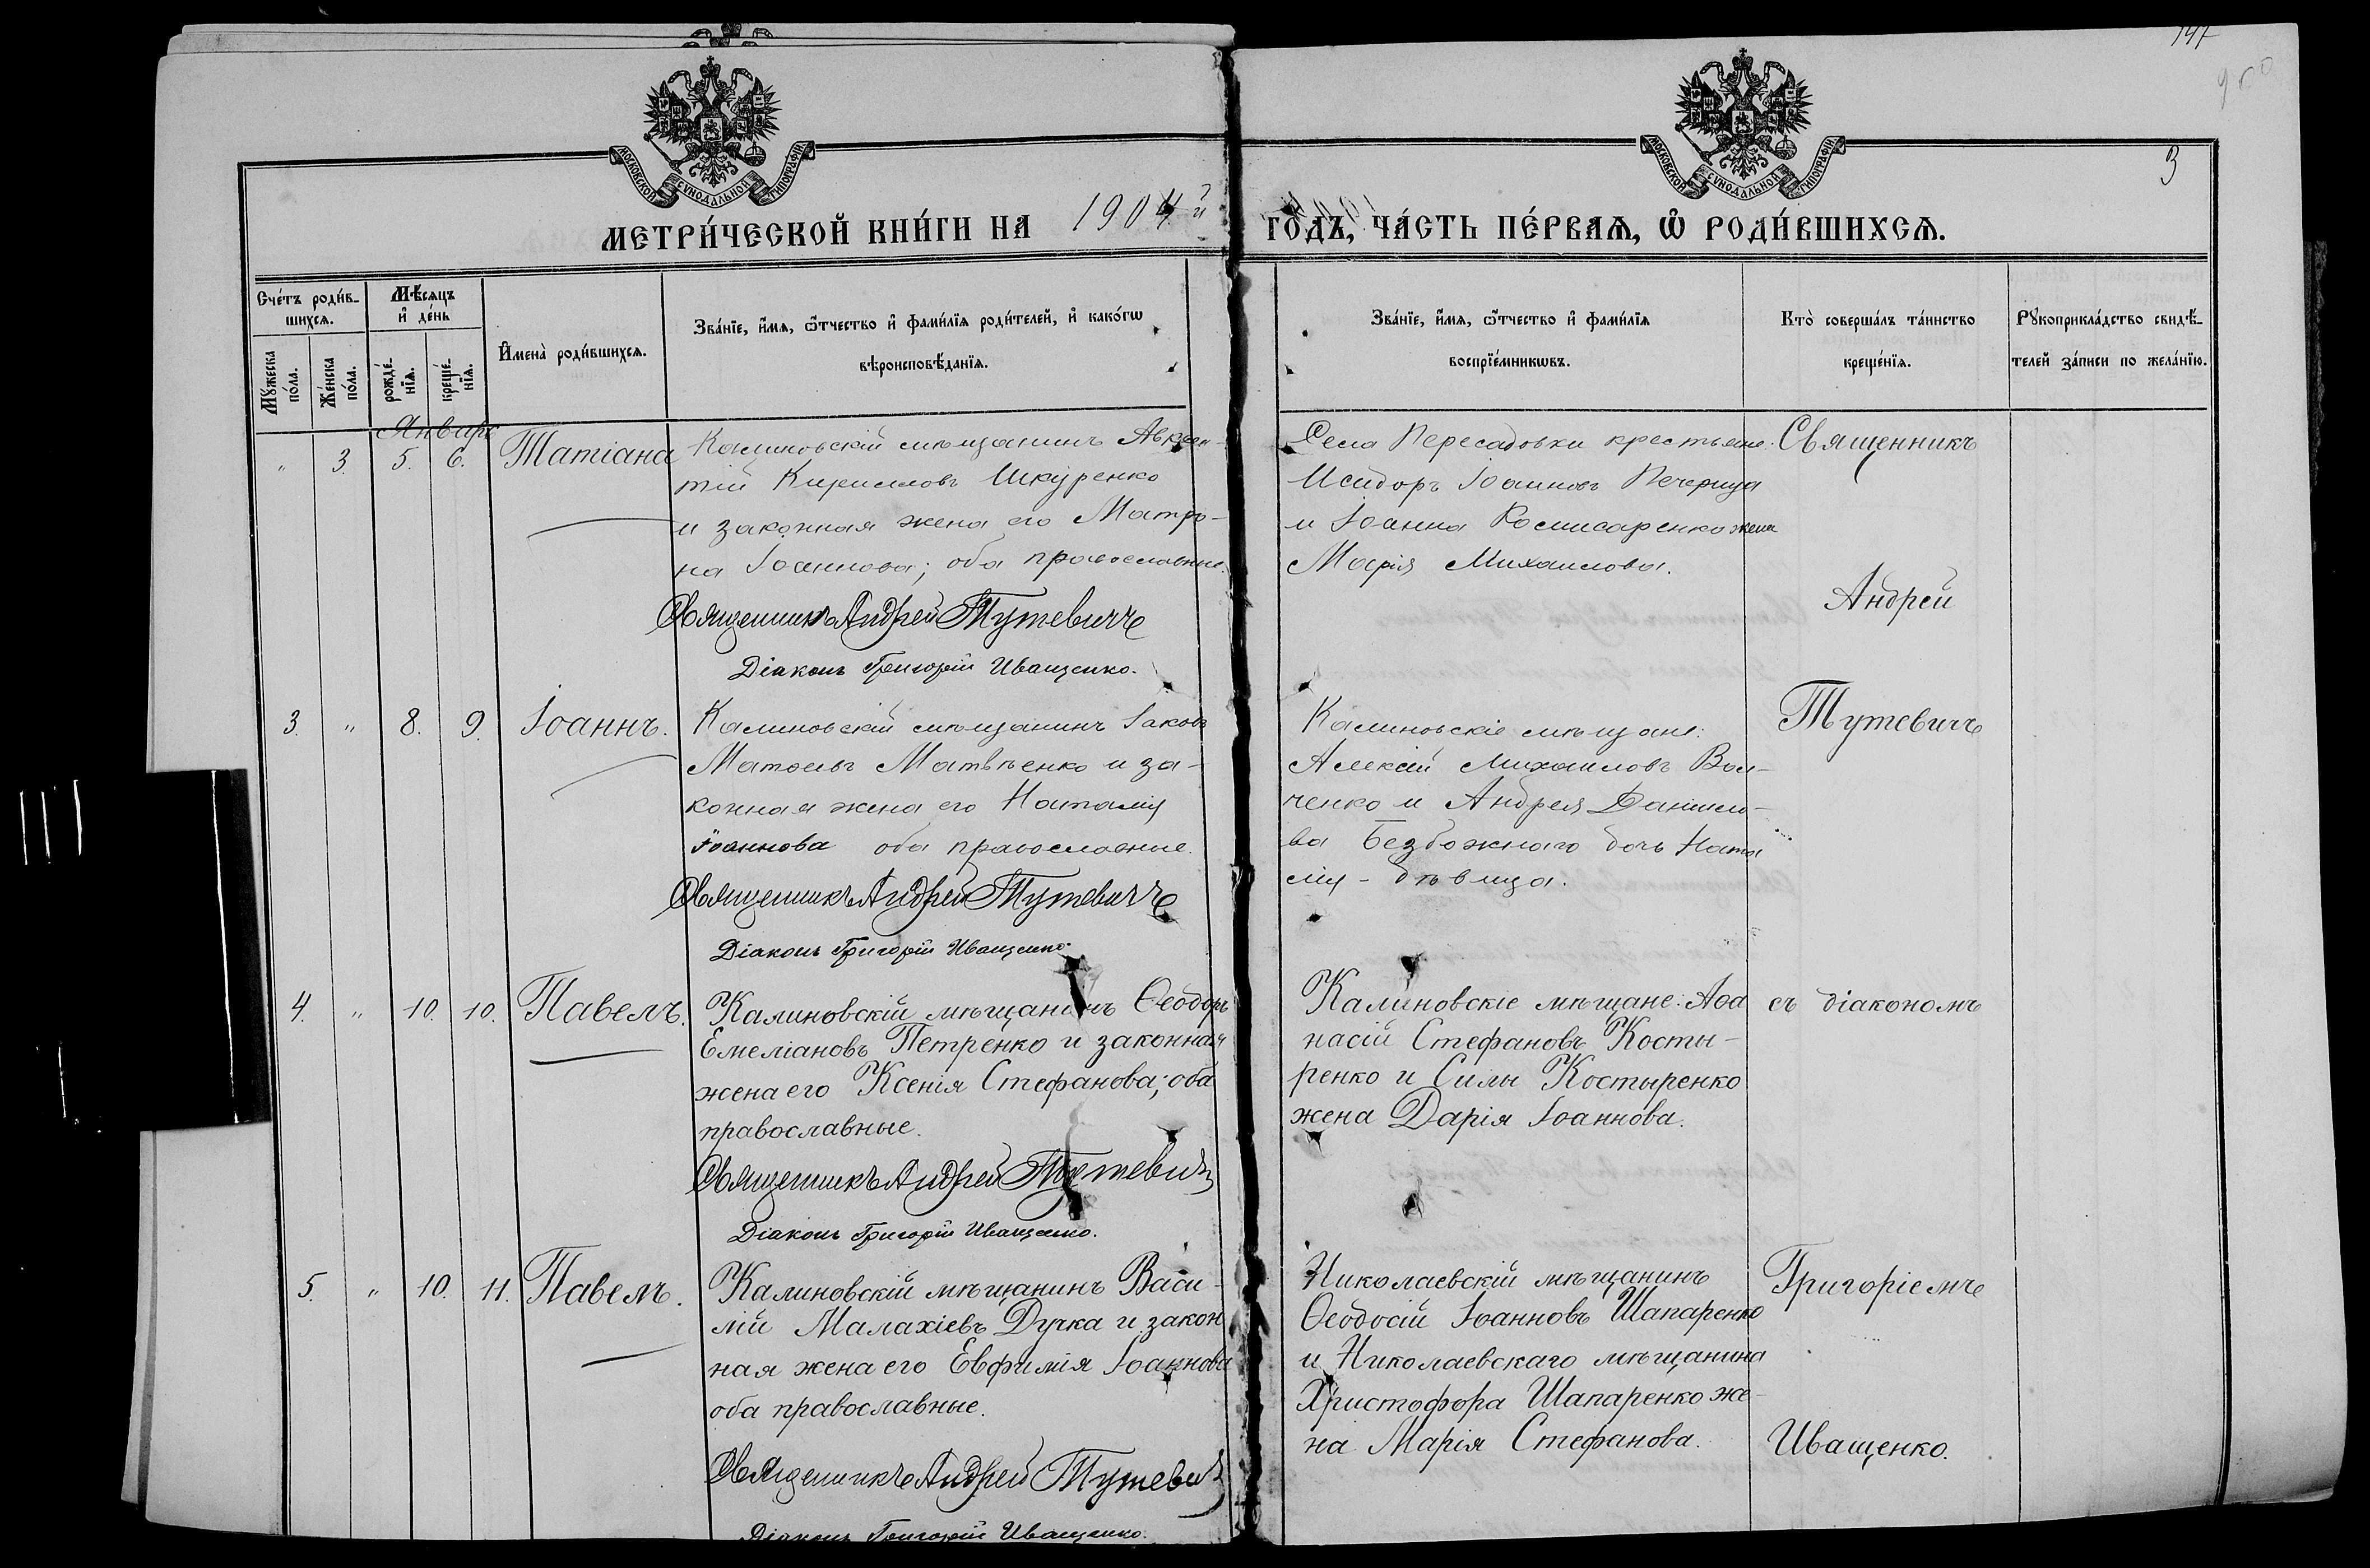 147
3
МОСКОВСКОЙ СУНОДАЛЬНОЙ ТИПОГРАФІИ
МОСКОВСКОЙ СУНОДАЛЬНОЙ ТИПОГРАФІИ
МЕТРИ́ЧЕСКОЙ КНИ́ГИ НА 1904й ГО́ДЪ, ЧА́СТЬ ПЕ́РВАѦ, Ѽ РОДИ́ВШИХСѦ.
Сче́тъ роди́в-
шихсѧ.
Мꙋ́жеска
по́ла.
Же́нска
по́ла.
Мѣ́сѧцъ
и҆ де́нь
рожде́-
нїѧ.
креще́-
нїѧ.
И҆мена̀ роди́вшихсѧ.
Зва́нїе, и҆́мѧ, ѻ҆́тчество и҆ фами́лїѧ роди́телей, и҆ како́гѡ
вѣроисповѣ́данїѧ.
Зва́нїе, и҆́мѧ, ѻ҆́тчество и҆ фами́лїѧ
воспрїе́мникѡвъ.
Кто̀ соверша́лъ та́инство
креще́нїѧ.
Рꙋкоприкла́дство свидѣ́-
телей за́писи по жела́нїю.
Январь
" 3. 5. 6. Татіана
Калиновскій мѣщанинъ Авксен-
тій Кирилловъ Шкуренко
и законная жена его Матро-
на Іоаннова; оба православные.
Священникъ Андрей Тутевичъ
Діаконъ Григорій Иващенко.
Села Пересадовки крестьяне:
Исидоръ Іоанновъ Печерица
и Іоанна Комисаренко жена
Марія Михаилова.
Священникъ
Андрей
3. " 8. 9. Іоаннъ.
Калиновскій мѣщанинъ Іаковъ
Матѳеевъ Матвѣенко и за-
конная жена его Наталія
Іоаннова оба православные.
Священникъ Андрей Тутевичъ
Діаконъ Григорій Иващенко.
Калиновскіе мѣщане:
Алексій Михаиловъ Вол-
ченко и Андрея Данило-
ва Безбожнаго дочь Ната
лія - дѣвица.
Тутевичъ
4. " 10. 10. Павелъ.
Калиновскій мѣщанинъ Ѳеодоръ
Емеліановъ Петренко и законная
жена его Ксенія Стефанова; оба
православные.
Священникъ Андрей Тутевичъ
Діаконъ Григорій Иващенко.
Калиновскіе мѣщане: Аѳа
насій Стефановъ Косты-
ренко и Силы Костыренко
жена Дарія Іоаннова.
съ діакономъ
5. " 10. 11. Павелъ.
Калиновскій мѣщанинъ Васи-
лій Малахіевъ Дучка и закон
ная жена его Евфимія Іоаннова
оба православные.
Священникъ Андрей Тутевичъ
Діаконъ Григорій Иващенко.
Николаевскій мѣщанинъ
Ѳеодосій Іоанновъ Шапаренко
и Николаевскаго мѣщанина
Христофора Шапаренко же-
на Марія Стефанова.
Григоріемъ
Иващенко.